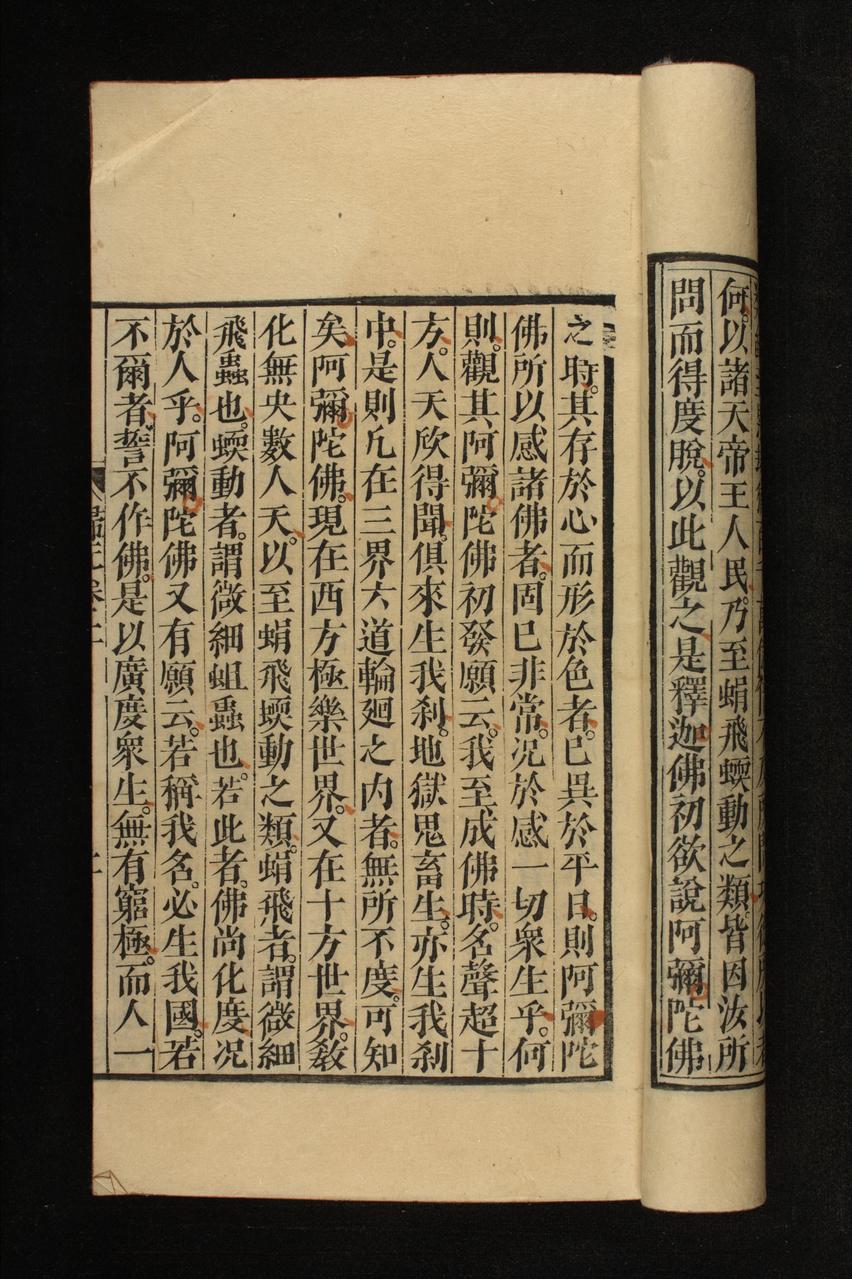 何以諸天帝王人民。乃至蜎飛蝡動之類。皆因汝所
問而得度脫。以此觀之是釋迦佛初欲說阿彌陀佛
之時。其存於心而形於色者。已異於平日。則阿彌陀
佛所以感諸佛者。固已非常。况於感一切衆生乎。何
則。觀其阿彌陀佛初發願云。我至成佛時。名聲超十
方。人天欣得聞。俱來生我刹。地獄鬼畜生。亦生我刹
中。是則凡在三界六道輪廻之内者。無所不度。可知
矣。阿彌陀佛。現在西方極樂世界。又在十方世界。敎
化無央數人天。以至蜎飛蝡動之類。蜎飛者。謂微細
飛蟲也。蝡動者。謂微細蛆蟲也。若此者。佛尚化度。况
於人乎。阿彌陀佛又有願云。若稱我名。必生我國。若
不爾者。誓不作佛。是以廣度衆生。無有窮極。而人一